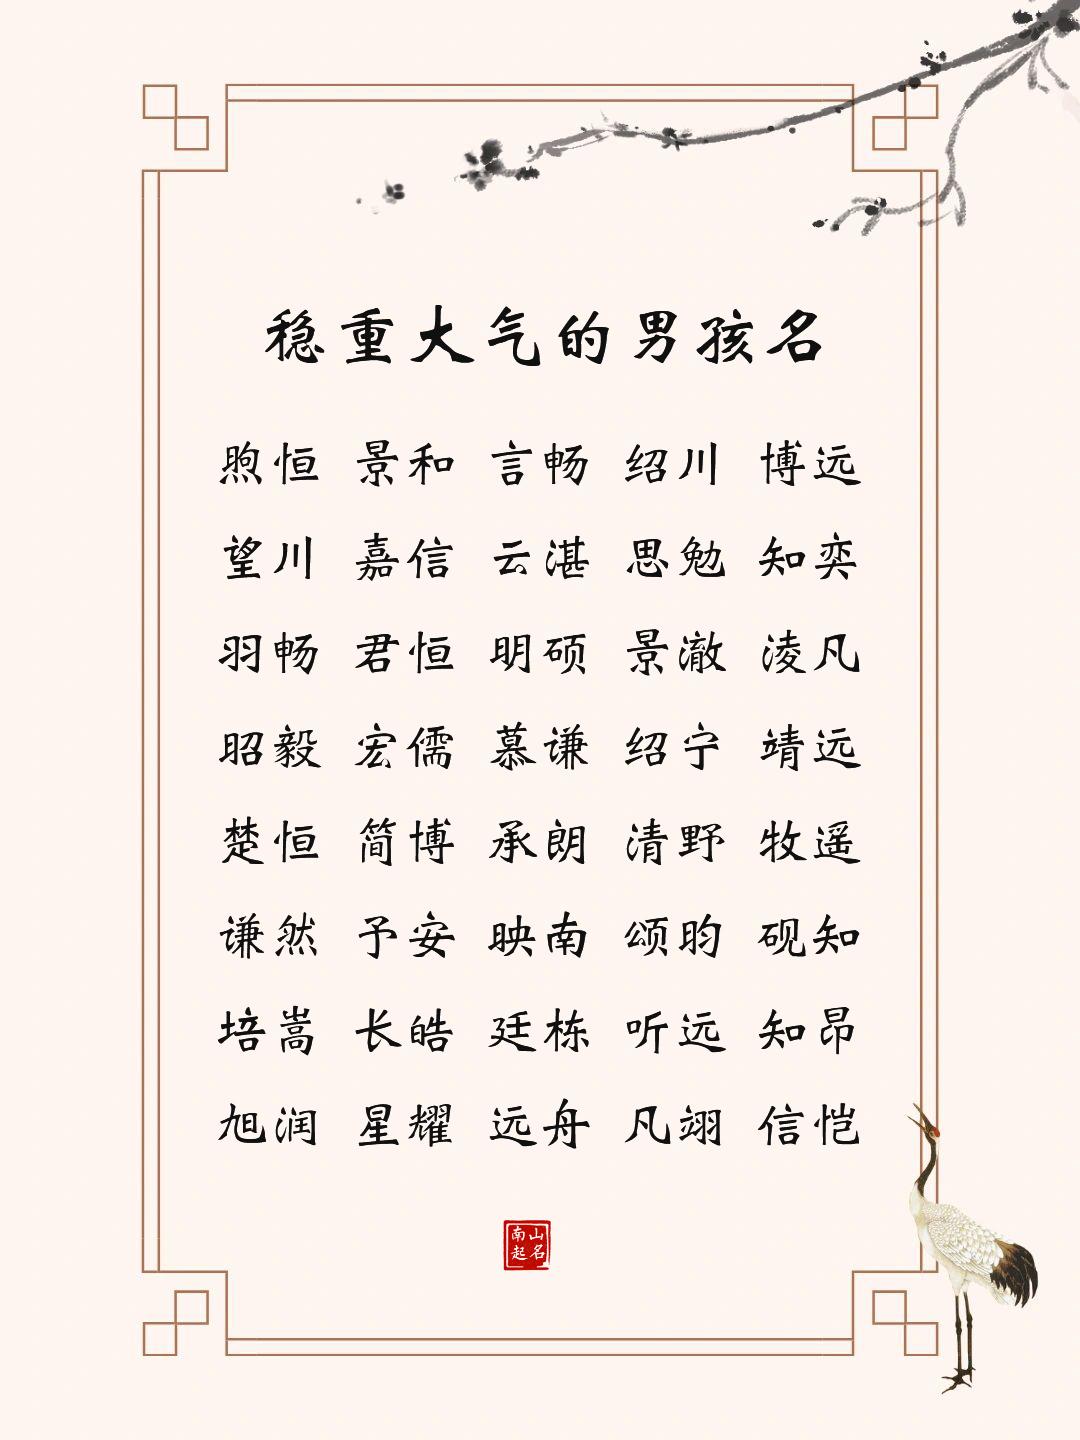 稳重大气的男孩名
煦恒 景和 言畅 绍川 博远
望川 嘉信 云湛 思勉 知奕
羽畅 君恒 明硕 景澈 凌凡
昭毅 宏儒 慕谦 绍宁 靖远
楚恒 简博 承朗 清野 牧遥
谦然 予安 映南 颂昀 砚知
培嵩 长皓 廷栋 听远 知昂
旭润 星耀 远舟 凡翊 信恺
南山
起名